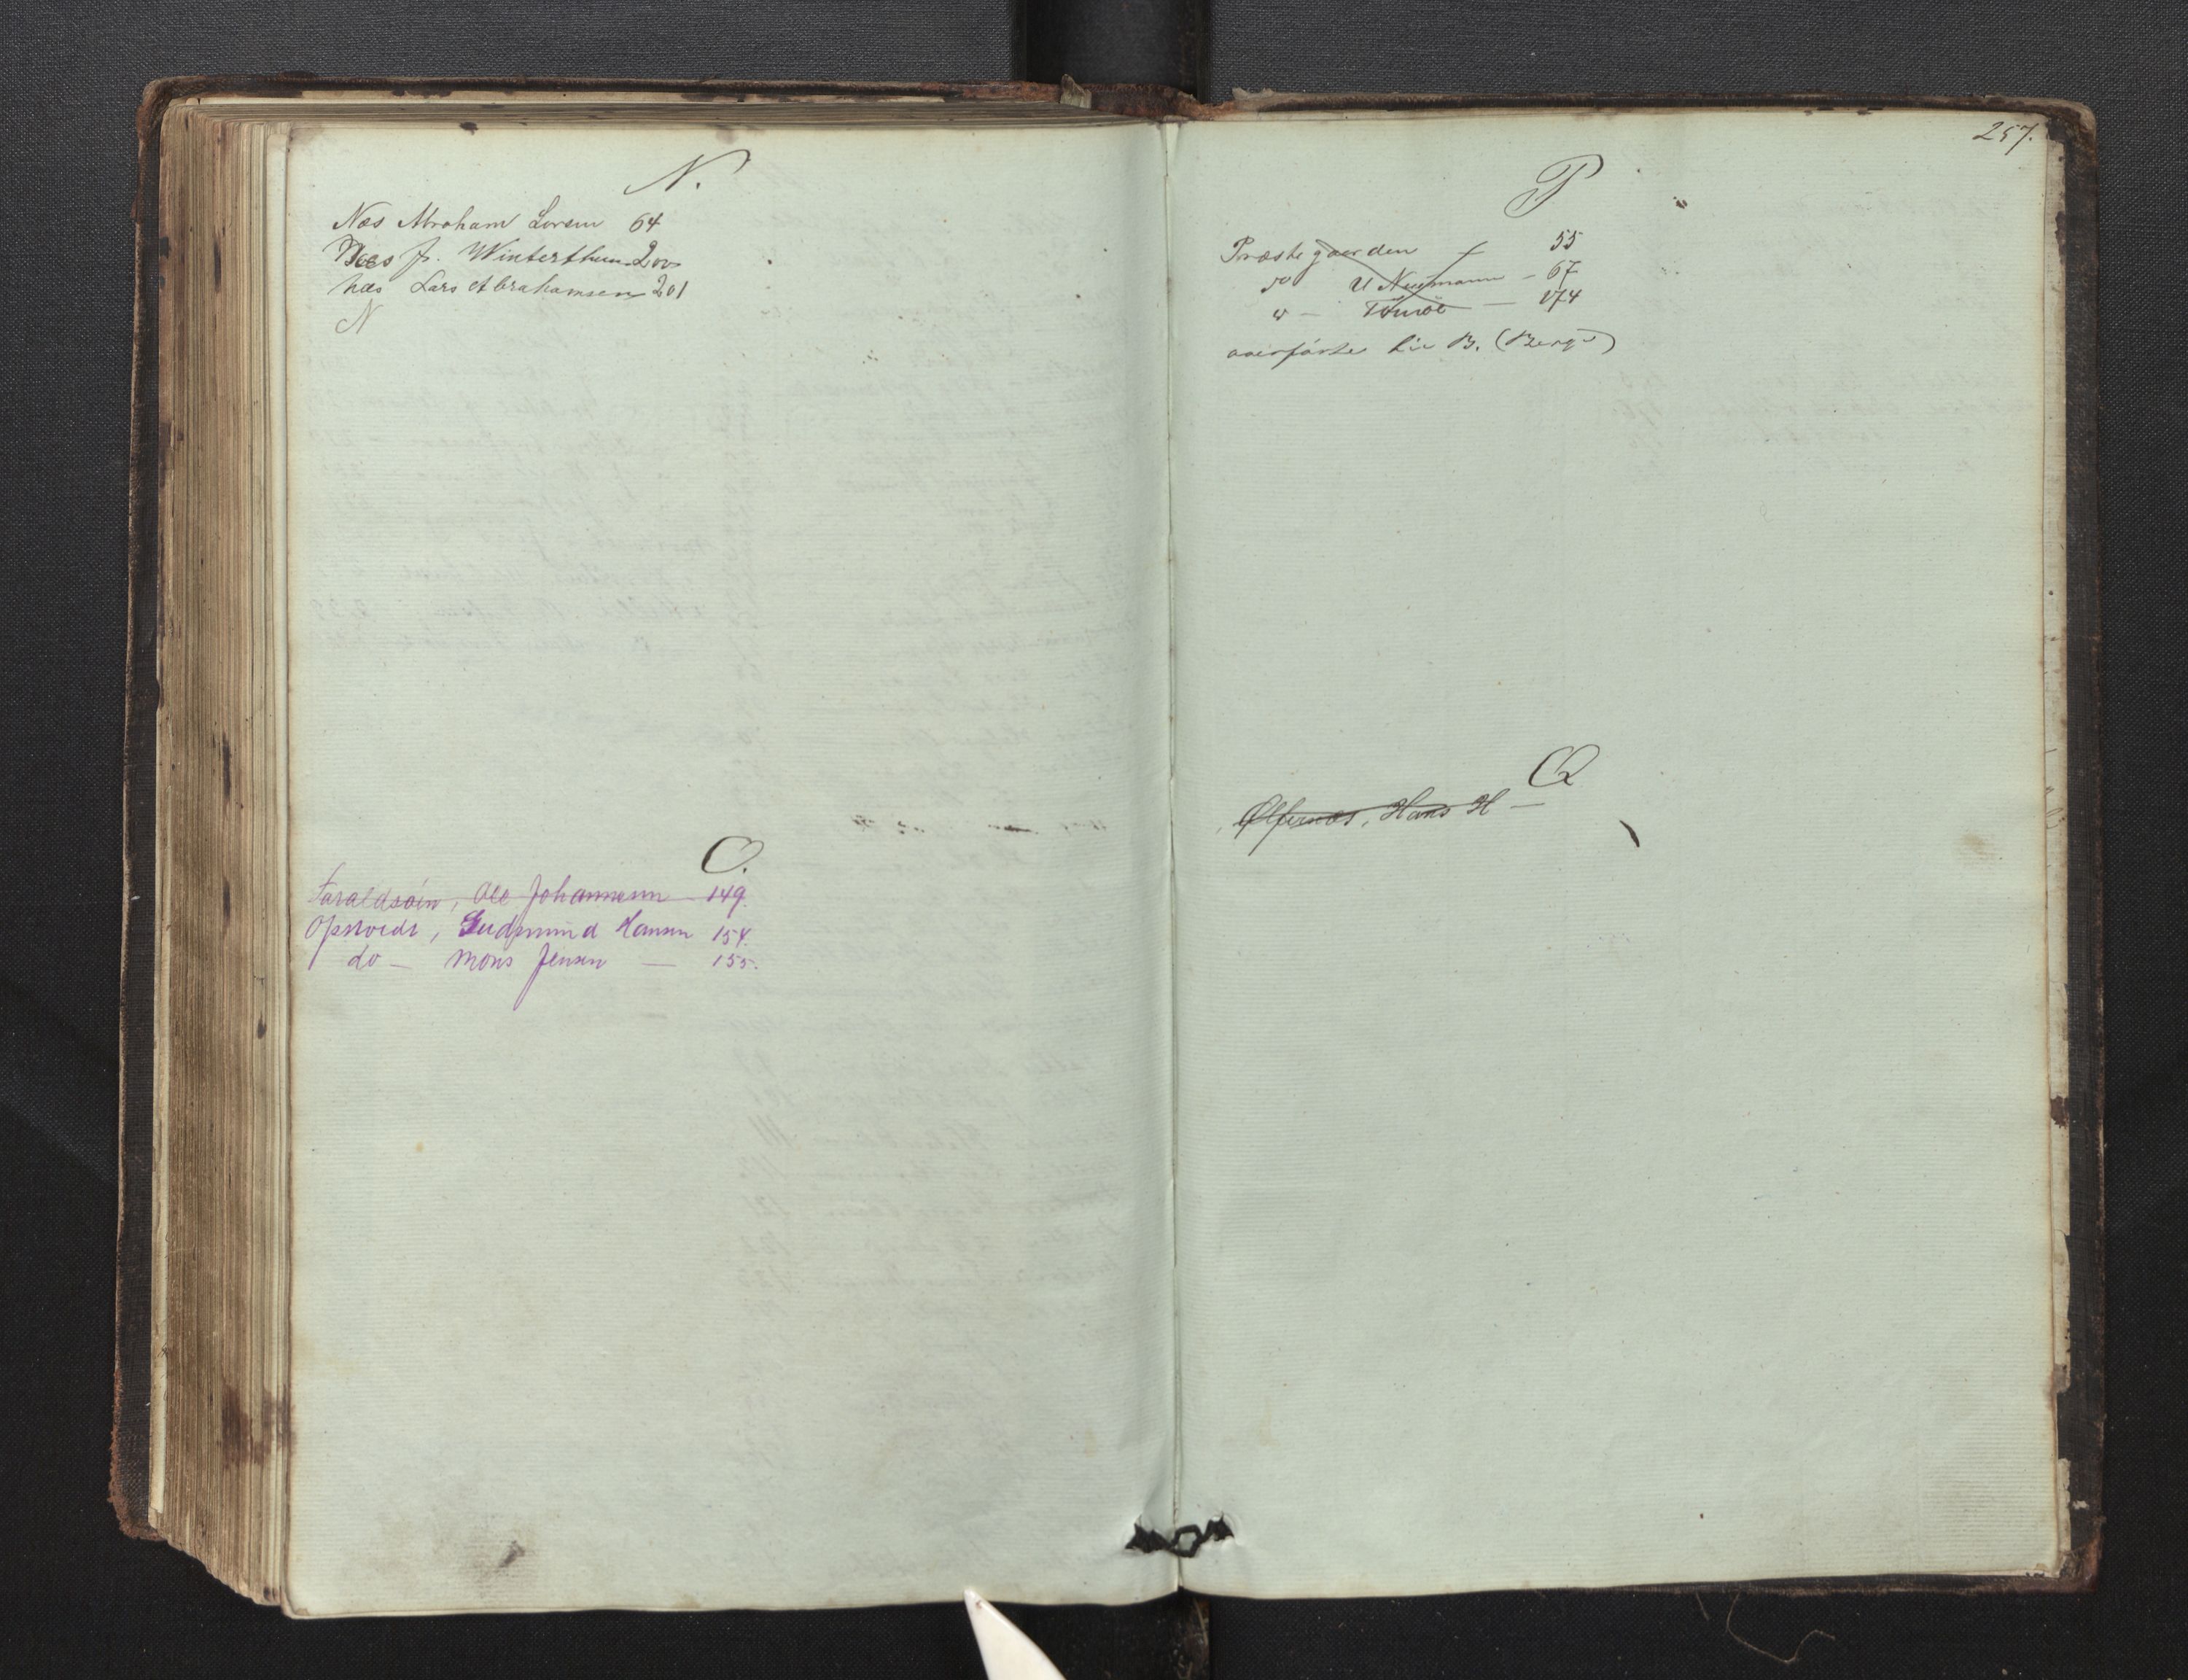 N.
Næs Abraham Larsen 64
Næs J. Winterthun 200
Næs Lars Abrahamsen 201
N
O.
Faraldsøin, Ole Johannesen 149.
Opstvedt, Gudmund Hansen 154.
do - Mons Jensen — 155.
257.
P
Præstegaarden 55
do U Neumann - 67
" — — 174
overførte Lit B. (Berge)
Q
Ølfernæs, Hans H —